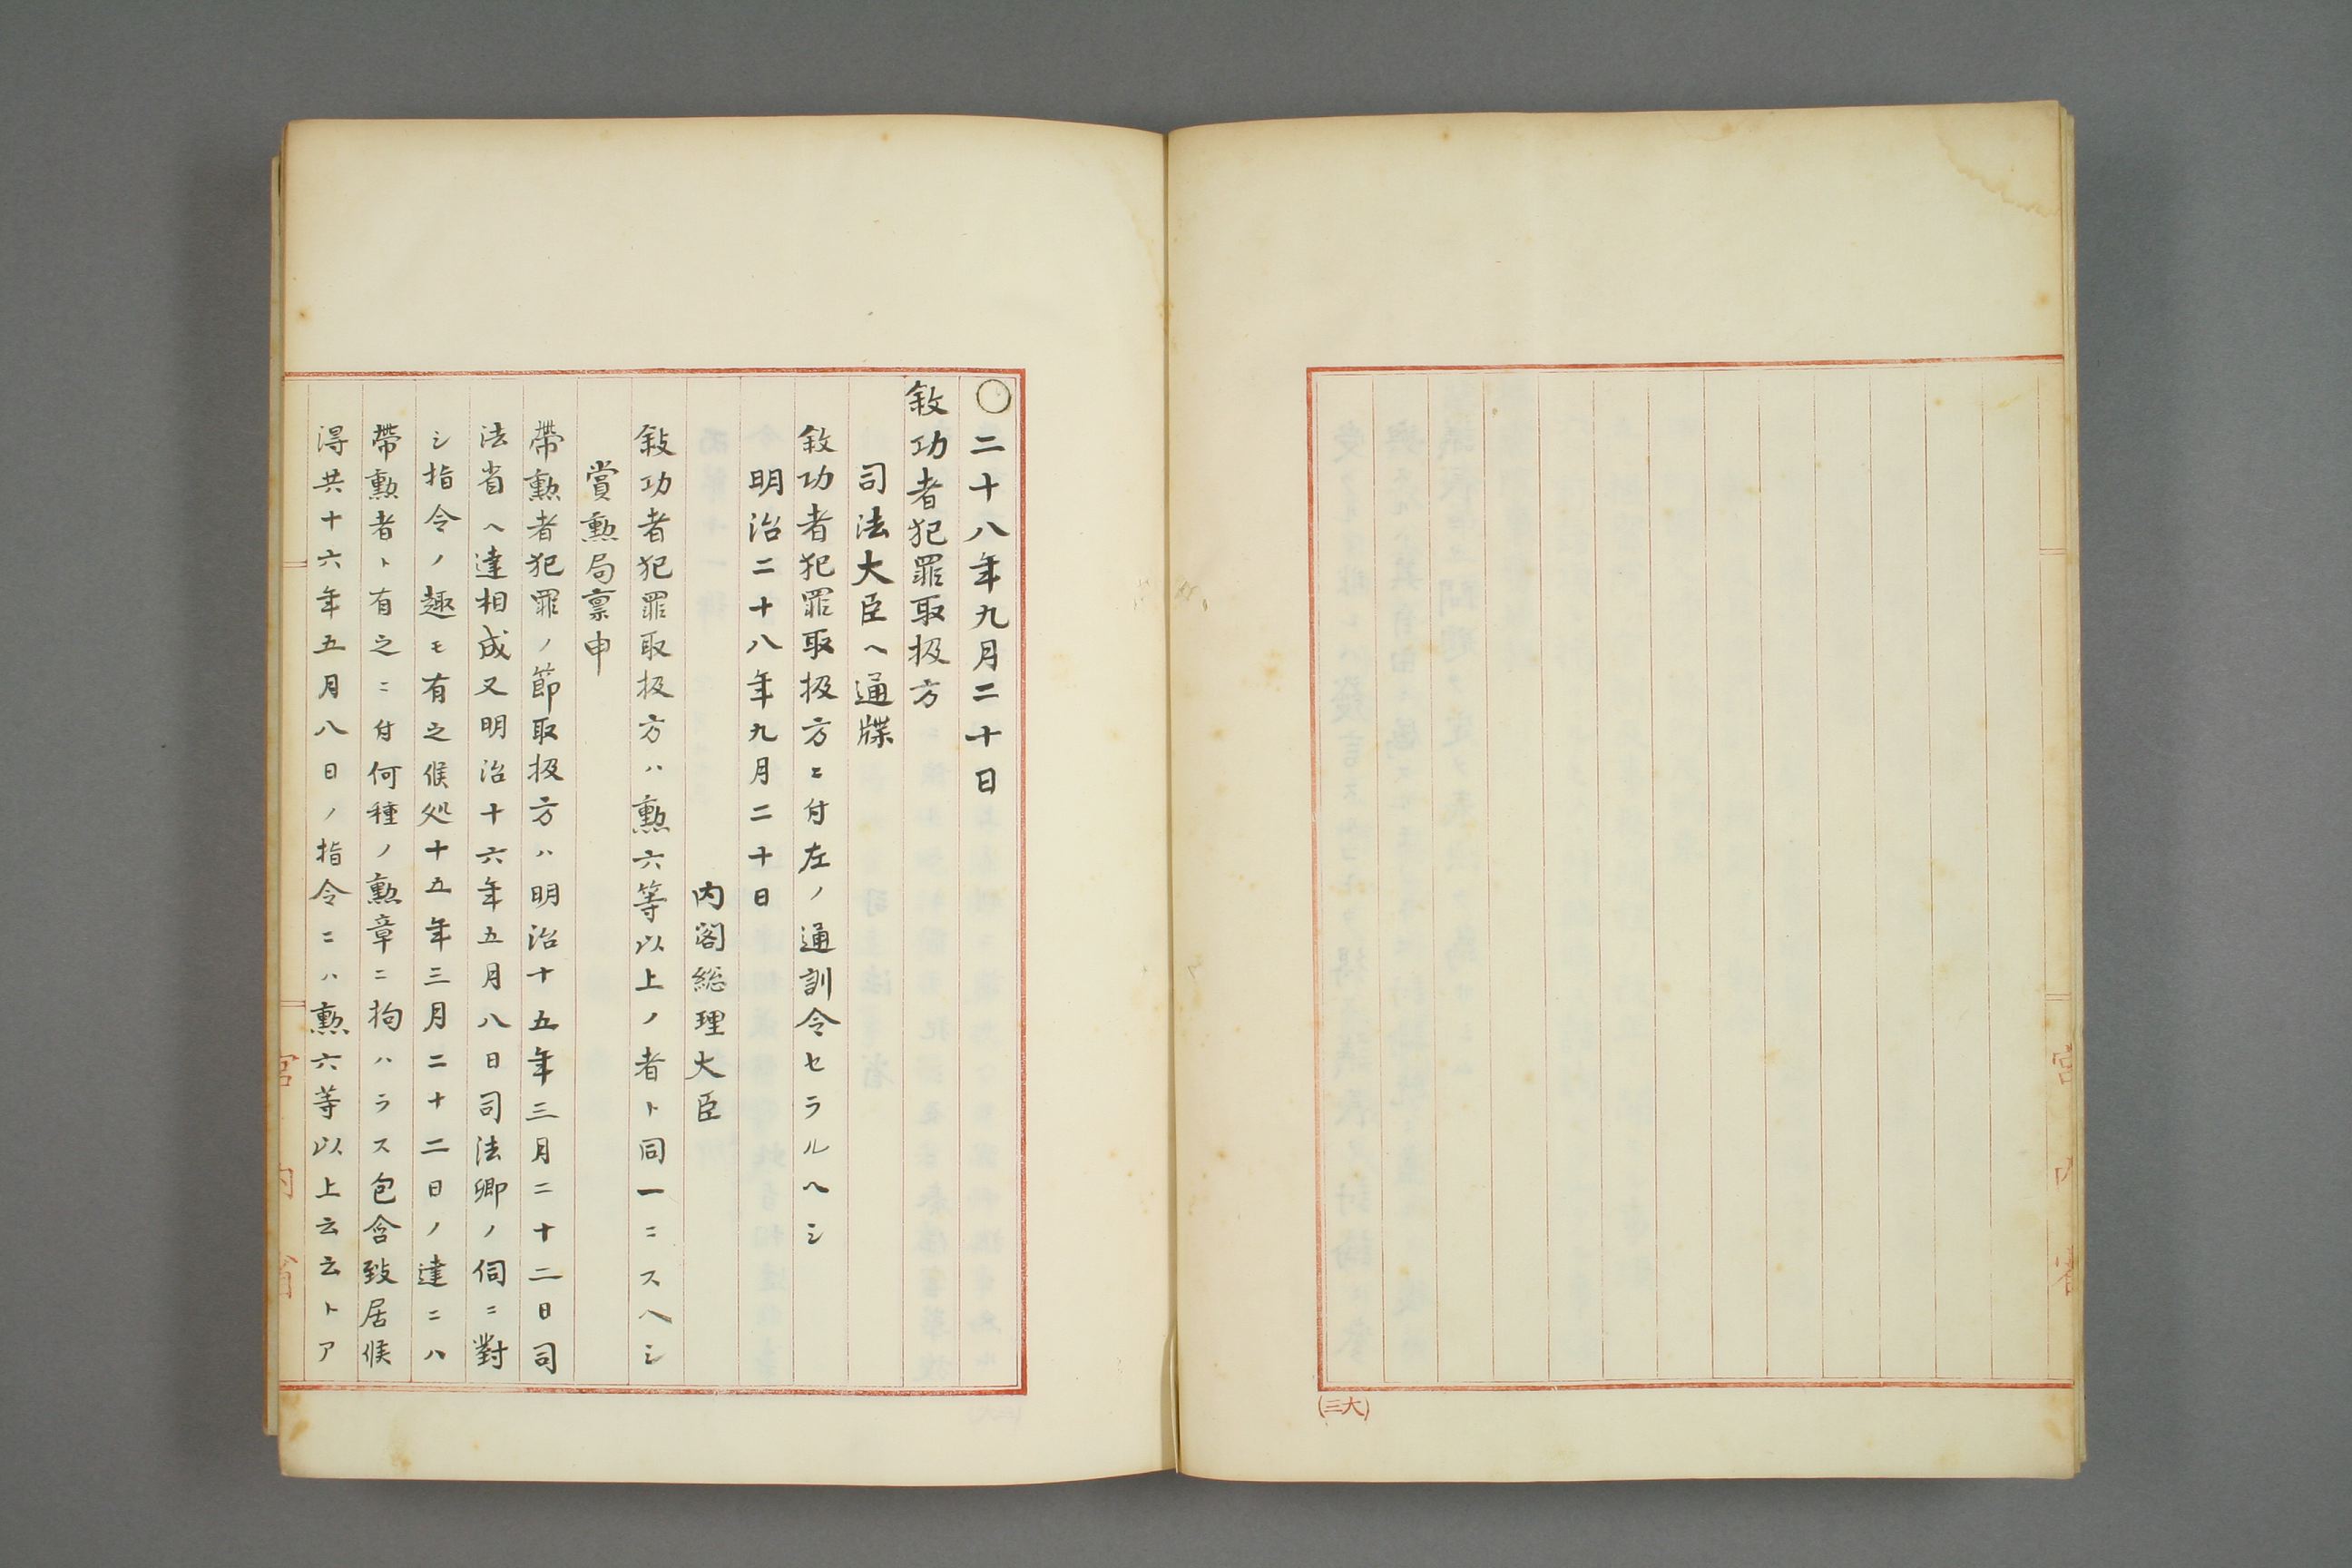 宮内省
(大三)
〇二十八年九月二十日
敘功者犯罪取扱方
司法大臣ヘ通牒
敘功者犯罪取扱方ニ付左ノ通訓令セラルヘシ
明治二十八年九月二十日
内閣総理大臣
敍功者犯罪取扱方ハ勲六等以上ノ者ト同一ニスヘシ
賞勲局稟申
帶勲者犯罪ノ節取扱方ハ明治十五年三月二十二日司
法省ヘ達相成又明治十六年五月八日司法卿ノ伺ニ對
シ指令ノ趣モ有之候処十五年三月二十二日ノ達ニハ
帶勲者ト有之ニ付何種ノ勲章ニ拘ハラス包含致居候
得共十六年五月八日ノ指令ニハ勲六等以上云云トア
宮内省